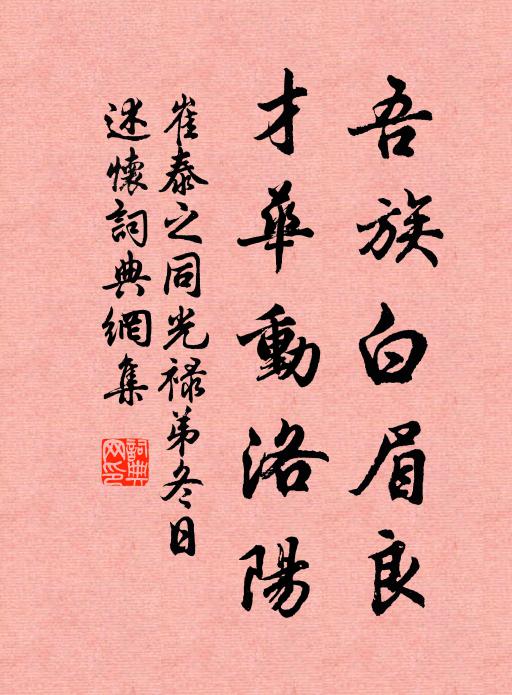 吾族白眉良
才華動洛陽
崔泰之同光祿弟冬日
述懷詞典網集
詞典網印